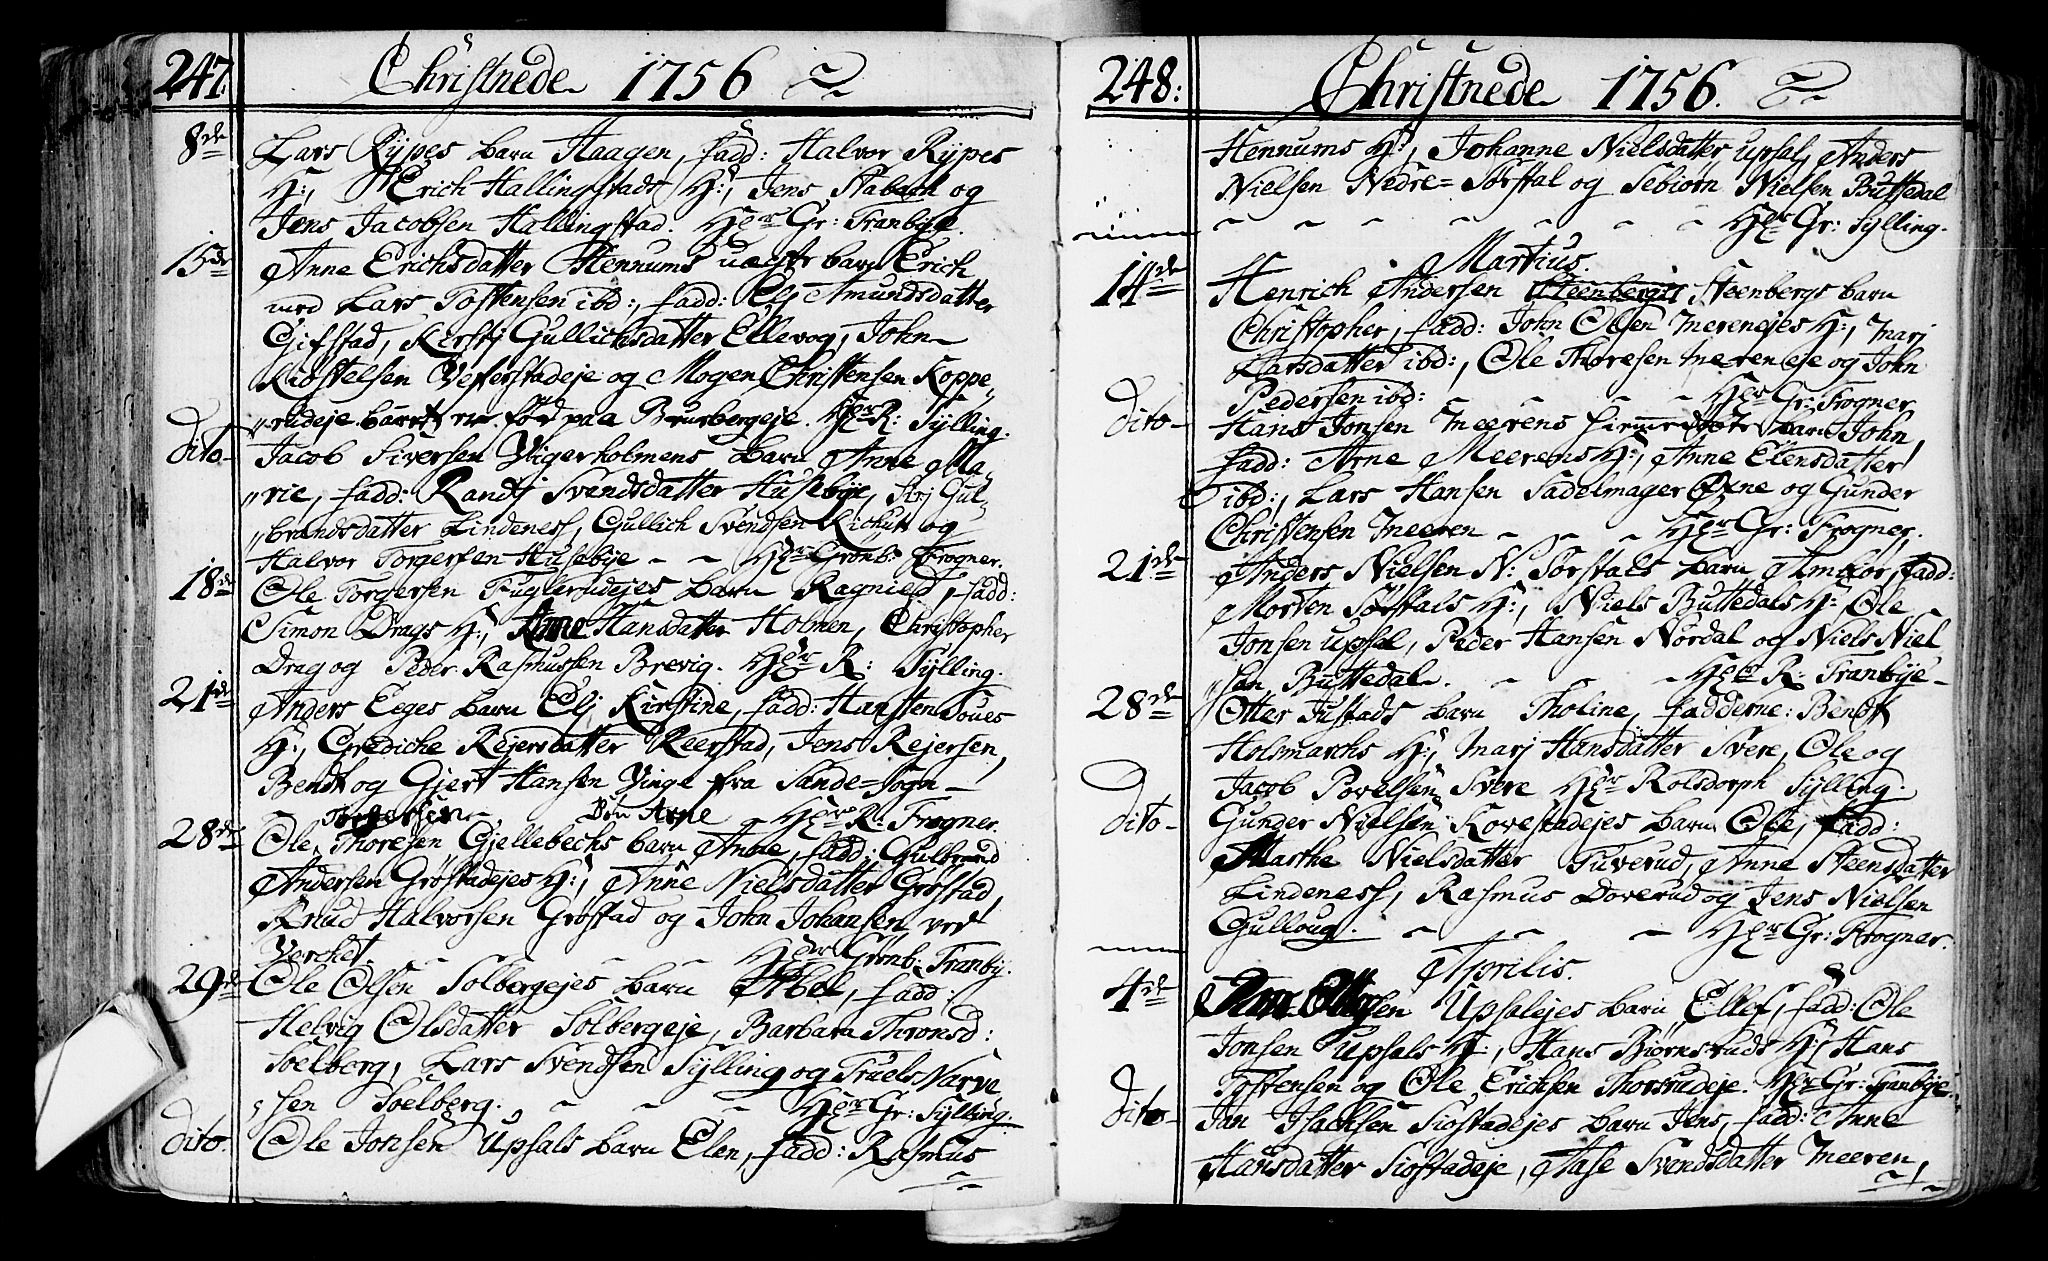 247. Christnede 1756
8de Lars Rypes barn Haagen, fadd: Halvor Rypes
H:, Erich Hallingstads H:, Jens Stabæch og
Jens Jacobsen Hallingstad. Gr: Tranbye.
15de Anne Erichsdatter Hennums uægte barn Erich
med Lars Tostensen ibd:, fadd: Elj Amundsdatter
Gifstad, Kirstj Gullichsdatter Ellevog, John
Kiøstelsen Vefferstadeje og Mogen Christensen Koppe„
„rudeje. barnet er fød paa Brursbergeje. R: Sylling.
dito Jacob Siversen Vigerholmens barn Anne Ma„
„rie, fadd: Randj Svendsdatter Husebye, Sirj Gul„
„brandsdatter Lindeness, Gullich Svendsen Kichut og
Halvor Torgersen Husebye Grønb: Frogner.
18de Ole Torgersen Fuglerudejes barn Ragnild, fadd:
Simon Drags H:, Anne Hansdatter Holmen, Christopher
Drag og Peder Rasmussen Brevig. R: Sylling.
21de Anders Eeges barn Elj Kirstine, fadd: Hansten Doues
H:, Grediche Rejersdatter Reerstad, Jens Rejersen,
Bendt og Gjert Hansen Vinge fra Sande=Sogn
Torgersen Arne R: Frogner.
28de Ole Thoresen Gjellebechs barn Anne, fadd: Gulbrand
Andersen Grøstadejes H:, Anne Nielsdatter Grøstad,
Knud Halvorsen Grøstad og John Johansen ved
Verchet. Grønb: Tranby.
29de Ole Olsen Solbergejes barn Abel, fadd:
Helvig Olsdatter Solbergeje, Barbara Thronsd:
Soelberg, Lars Svendsen Sylling og Truels Narve
sen Soelberg. Gr: Sylling.
dito Ole Jonsen Upsals barn Elen, fadd: Rasmus
248: Christnede 1756.
Hennums H:, Johanne Nielsdatter Upsal, Anders
Nielsen Nedre=Sørsdal og Sebiørn Nielsen Buttedal
Gr: Sylling.
Martius.
14de Henrich Andersen Steenbergs barn
Christopher, fadd: John Olsen Meerenejes H:, Marj
Larsdatter ibd:, Ole Thoresen Meereneje og John
Pedersen ibd: Gr: Frogner
dito Hans Jonsen Meerens barn John,
fadd: Arne Meerens H:, Anne Elensdatter
ibd:, Lars Hansen Sadelmager Øxne og Gunder
Christensen Meeren Gr: Frogner.
21de Anders Nielsen N: Sørsdals barn Ambior, fadd:
Morten Sørsdals H:, Niels Buttedals H: Ole
Jonsen Upsal, Peder Hansen Nordal og Niels Niel
„sen Buttedal. R: Tranbye
28de Otter Justads barn Tholine, fadderne: Bendt
Holsmarchs H:, Marj Hansdatter Svere, Ole og
Jacob Povelsen Svere Rolsdorph Sylling.
dito Gunder Nielsen Kovestadejes barn Ole, fadd:
Marthe Nielsdatter Tuverud, Anne Steensdatter
Lindeness, Rasmus Doverud og Jens Nielsen
Gulloug. Gr: Frogner.
Aprilis.
4de Upsalejes barn Ellef, fadd: Ole
Jonsen Upsals H:, Hans Biørnsruds H:, Hans
Tostensen og Ole Erichsen Thorsrudeje. Gr: Tranbye.
dito Jan Isachsen Siøstadejes barn Jens, fadd: Anne
Hansdatter Siøstadeje, Aase Svendsdatter Meeren,